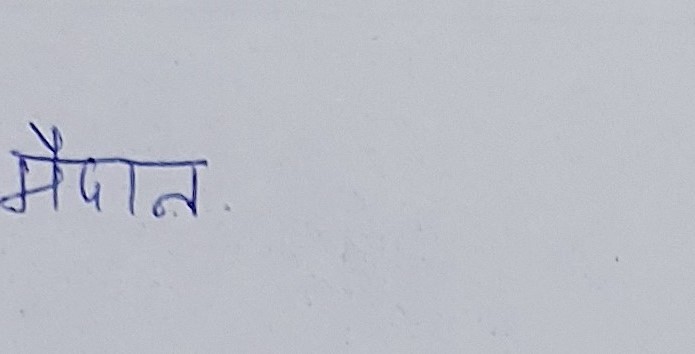 मैदान.